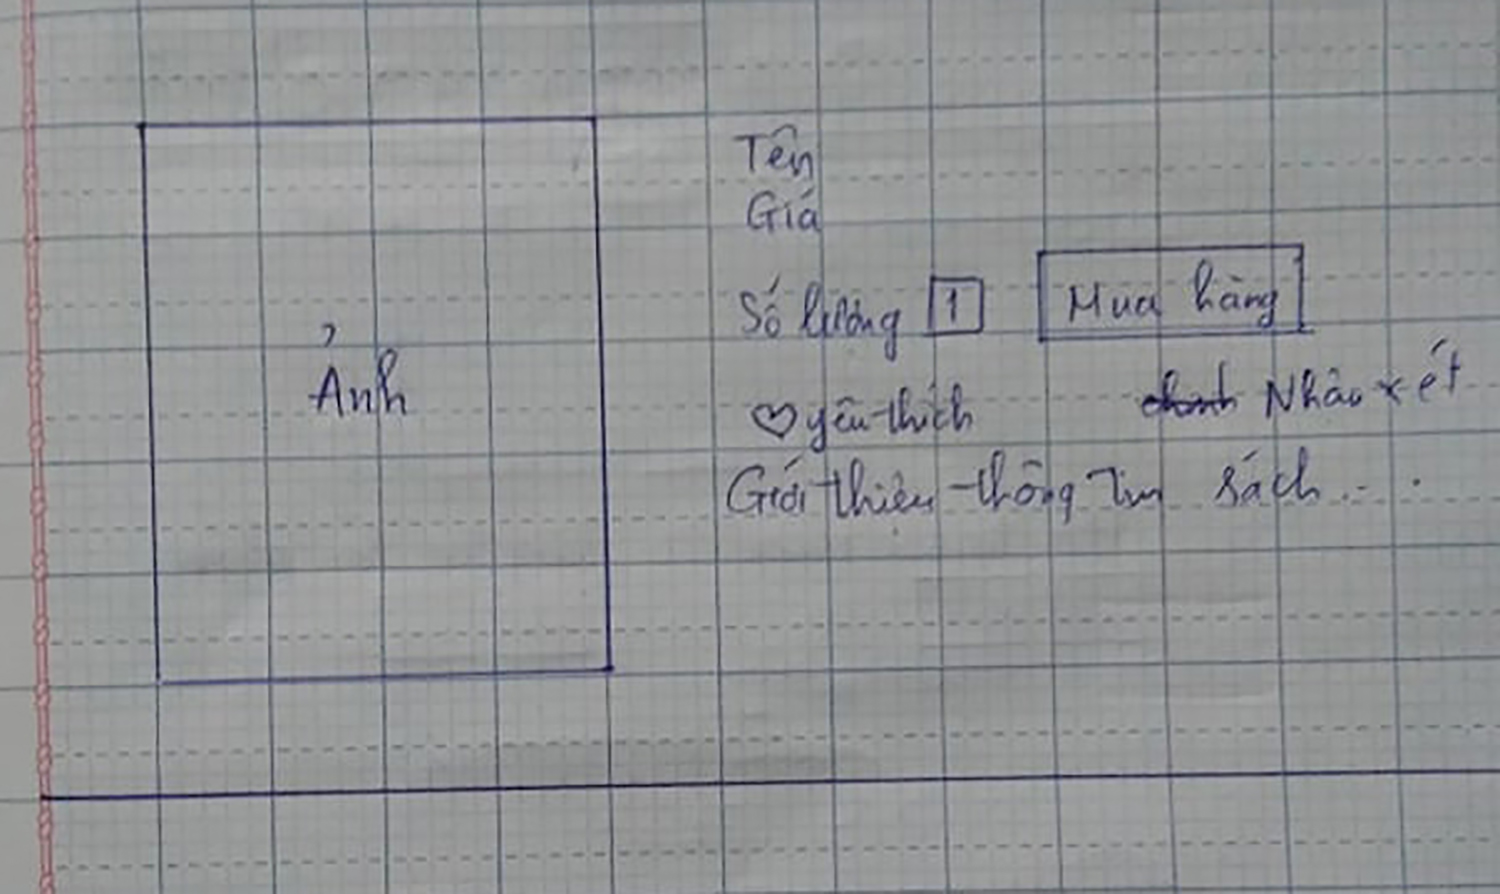 Tên
Giá
Ảnh
Số lượng 1 Mua hàng
yêu thích Nhận xét
Giới thiệu thông tin sách...